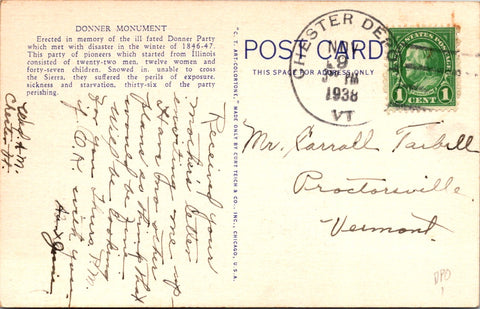 DONNER MONUMENT
Erected in memory of the ill fated Donner Party
which met with disaster in the winter of 1846-47.
This party of pioneers which started from Illinois
consisted of twenty-two men, twelve women and
forty-seven children. Snowed in, unable to cross
the Sierra, they suffered the perils of exposure,
sickness and starvation, thirty-six of the party
perishing.
Chester
Vt.
Received your
mother's letter
inviting me up
Have two other
plans as things that
will be
looking
for you
if O.K. with you
"C. T. ART-COLORTONE" MADE ONLY BY CURT TEICH & CO., INC., CHICAGO, U.S.A.
POST CARD
THIS SPACE FOR ADDRESS ONLY
CHESTER DEPOT
NOV
9
PM
1938
VT.
U.S. POSTAGE
1 CENT 1
Mr. Carroll Tarbell
Proctorsville
Vermont.
DPO
1